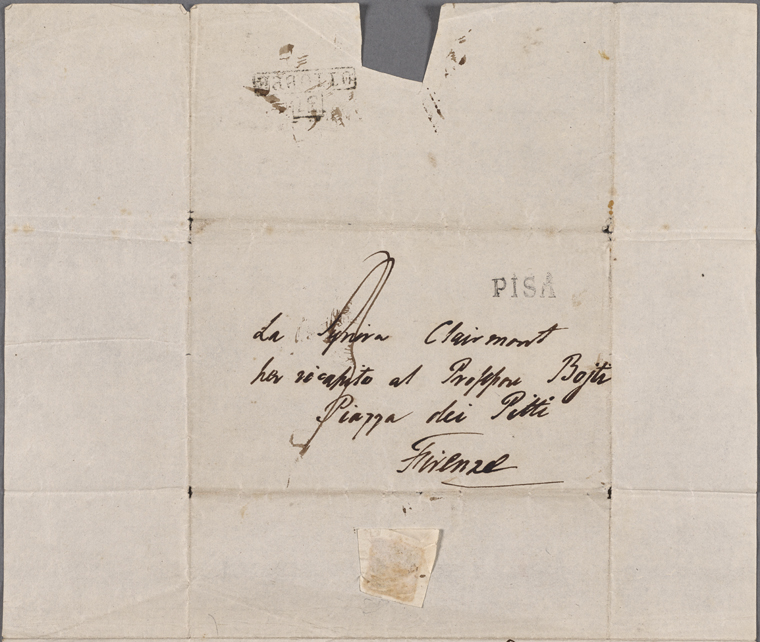 OTTOBRE
PISA
La Signora Clairmont
per ricapito al Professore Bojti
Piazza dei Pitti
Firenze